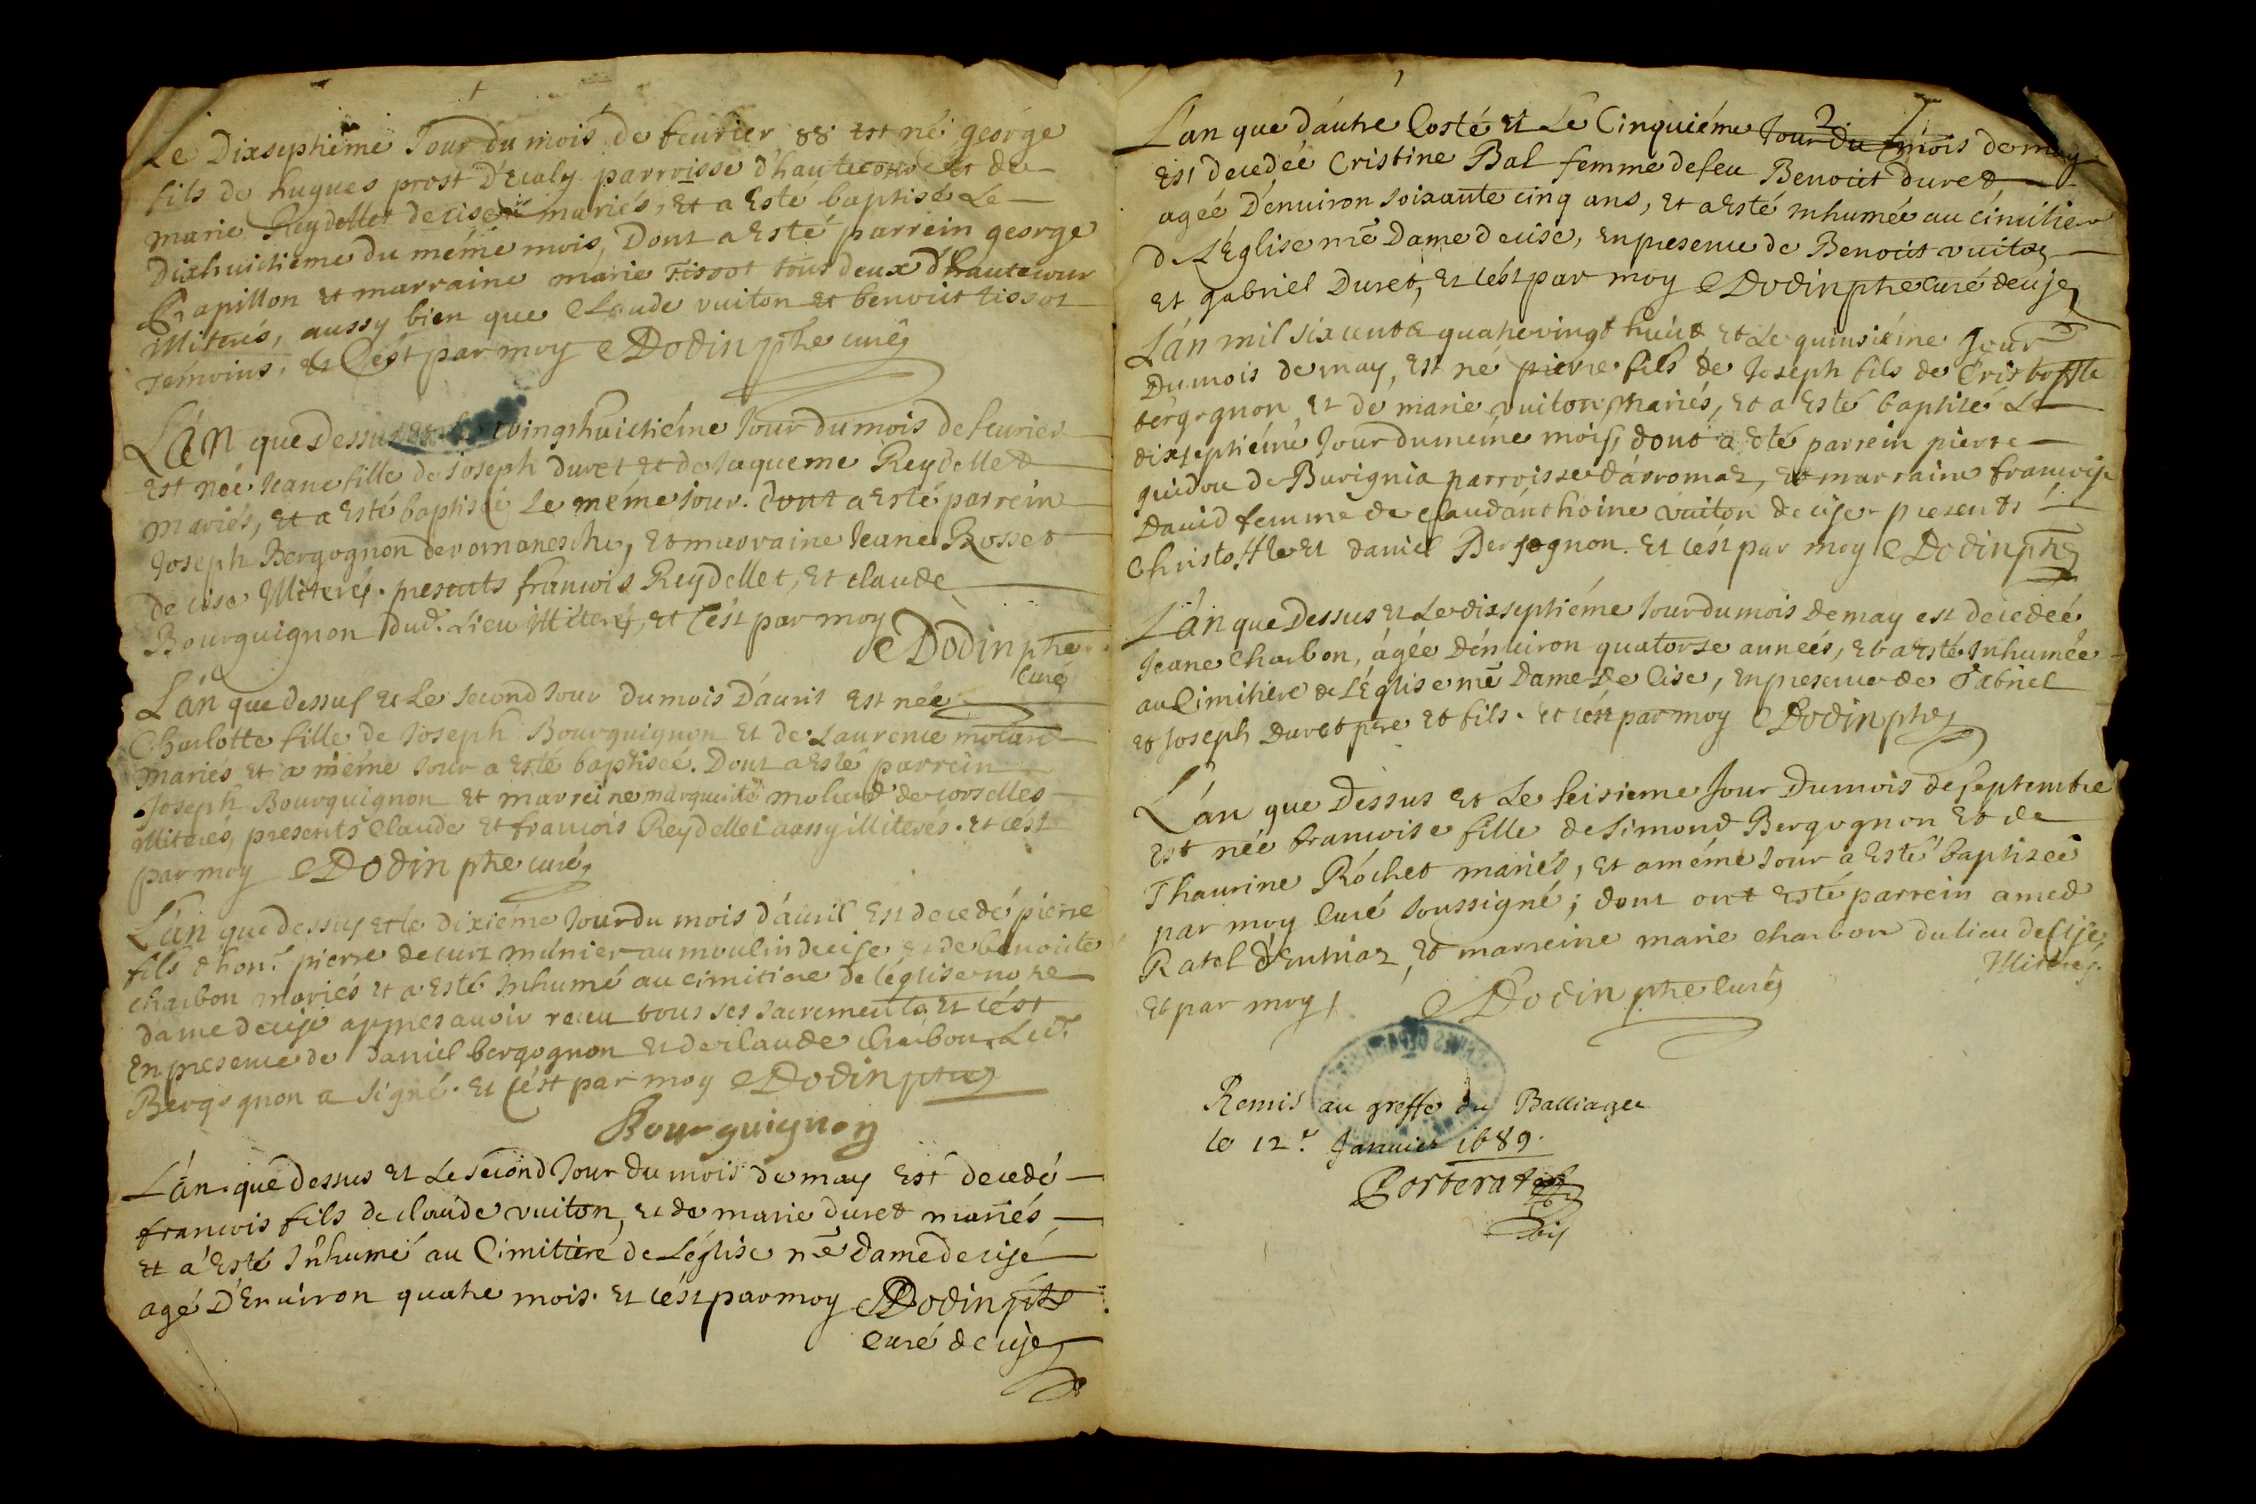 Le Dixseptiéme Jour du mois de feurier 88 est né george
fils de hugues prost D'eualy parroisse d'hautecour et de
marie Reydellet de cise mariés, Et a Esté baptisé Le
Dixhuictieme du méme mois, Dont a Esté parrein george
Papillon Et marraine marie Tissot tous deux d'hautecour
Illiterés, aussy bien que Claude vuiton et benoict tissot
Temoins, et C'est par moy C Dodin ptre curé
L'an que Dessus et le vingthuictiéme Jour du mois de feurier
Est née Jeane fille de Joseph duret et de Jaqueme Reydellet
Mariés, Et a Esté baptisée Le méme Jour. dont a Esté parrein
Joseph Bergognon de romanesche, Et marraine Jeane Rosset
de cise Illiterés. presents francois Reydellet, Et claude
Bourguignon dud. Lieu Illiterés, et C'est par moy
C Dodin ptre
Curé
L'an que dessus Et Le second Jour du mois D'auril Est née
Charlotte fille de Joseph Bourguignon Et de Laurence molard
mariés Et a méme Jour a Esté baptisée. Dont a Esté parrein
Joseph Bourguignon Et marreine marguerite molard de corselles
Illiterés, presents Claude Et francois Reydellet aussy illiteres. et c'est
par moy C Dodin ptre curé
L'an que dessus et le dixiéme Jour du mois d'auril Est decedé pierre
fils d'hon. pierre decurt múnier au moulin de cise et de benoicte
charbon mariés et a Esté Inhumé au cimitiere de l'église notre
dame de cise appres auoir receu tous ses sacrements Et c'est
En presence de daniel bergognon Et de claude Charbon. Led.
Bergognon a signé. Et c'est par moy C Dodin ptre
Bourguignon
L'an que dessus Et Le second Jour du mois de may Est decedé
francois fils de claude vuiton, Et de marie duret mariés
Et a Esté Inhumé au Cimitieré de L'églisé nré dame de cisé
agé D'Enuiron quatre mois. Et c'est par moy C Dodin ptre
Curé de cise
2
L'an que d'autre Costé Et Le Cinquiéme Jour du mois de may
Est decedée Cristine Bal femme de feu Benoict duret
agée D'enuiron soixante cinq ans, Et a Esté Inhumée au cimitier
de L'Eglise nré Dame de cise, En presence de Benoict vuiton
Et gabriel Duret, Et c'est par moy C Dodin ptre Curé de cise
L'an mil six cents quatrevingt huict Et Le quinsiéme Jour
Du mois de may, Est né pierre fils de Joseph fils de Cristoffle
bergognon Et de marie vuiton mariés, Et a Esté baptisé Le
dixseptiéme Jour du méme mois, dont a eté parrein pierre
guidou de Burignia parroisse d'arromaz, et marraine francoise
Dauid femme de claud'anthoine vuiton de cise presents
Christoffle et daniel Bergognon. Et c'est par moy C Dodin ptre
L'an que Dessus et Le dixseptiéme Jour du mois de may est decedeé
Jeane charbon, ágée D'enuiron quatorse anneés, Et a Esté Inhumée
au Cimitiere de L'église nré Dame de Cise, En presence de Gabriel
Et Joseph Duret pere Et fils. et c'est par moy C Dodin ptre
L'an que Dessus Et Le seisieme Jour du mois de septembre
Est née francoise fille de Simond Bergognon Et de
Thaurine Róchet mariés, Et a méme Jour a Esté baptizée
par moy Curé soussigné; dont ont Esté parrein amed
Ratel d'Enturaz, Et marreine marie charbon du lieu de Cise,
Illiterés.
Et par moy, C Dodin ptre Curé
Remis au greffe du Balliage
le 12.e Januier 1689.